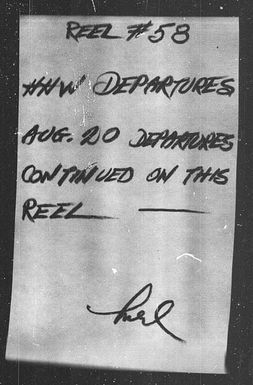 REEL #58
HHW DEPARTURES
AUG. 20 DEPARTURES
CONTINUED ON THIS
REEL